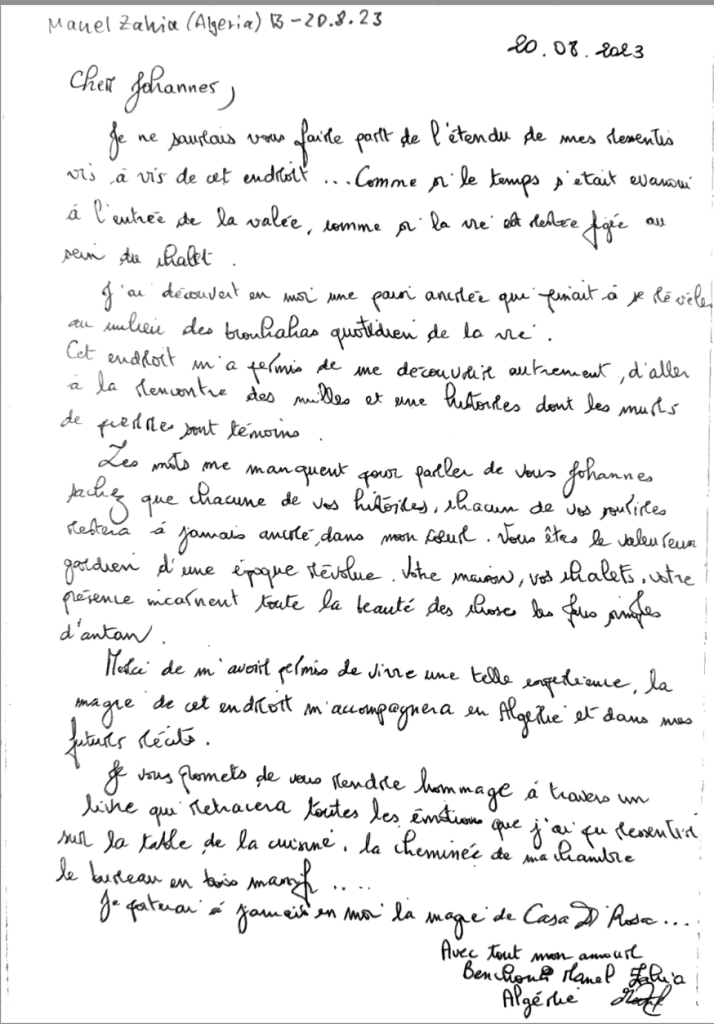 Manel Zahia (Algeria) B - 20.8.23
20.08.2023
Cher Johannes,
Je ne saurais vous faire part de l'étendu de mes ressentis
vis à vis de cet endroit ... Comme si le temps s'était evanoui
à l'entrée de la valée, comme si la vie est restée figée au
sein du chalet.
J'ai découvert en moi une paix ancrée qui peinait à se révéler
au milieu des brouhahas quotidien de la vie.
Cet endroit m'a permis de me découvrir autrement, d'aller
à la rencontre des milles et une histoires dont les murs
de pierres sont témoins.
Les mots me manquent pour parler de vous Johannes
sachez que chacune de vos histoires, chacun de vos sourires
restera à jamais ancré dans mon cœur. Vous êtes le valeureux
gardien d'une époque révolue. Votre maison, vos chalets, votre
présence incarnent toute la beauté des choses les plus simples
d'antan.
Merci de m'avoir permis de vivre une telle experience, la
magie de cet endroit m'accompagnera en Algérie et dans mes
futurs récits.
Je vous promets de vous rendre hommage à travers un
livre qui retracera toutes les émotions que j'ai pu ressentir
sur la table de la cuisine, la cheminée de ma chambre
le bureau en bois massif ....
Je porterai à jamais en moi la magie de Casa D'Rosa ...
Avec tout mon amour
Manel Zahia
Algérie